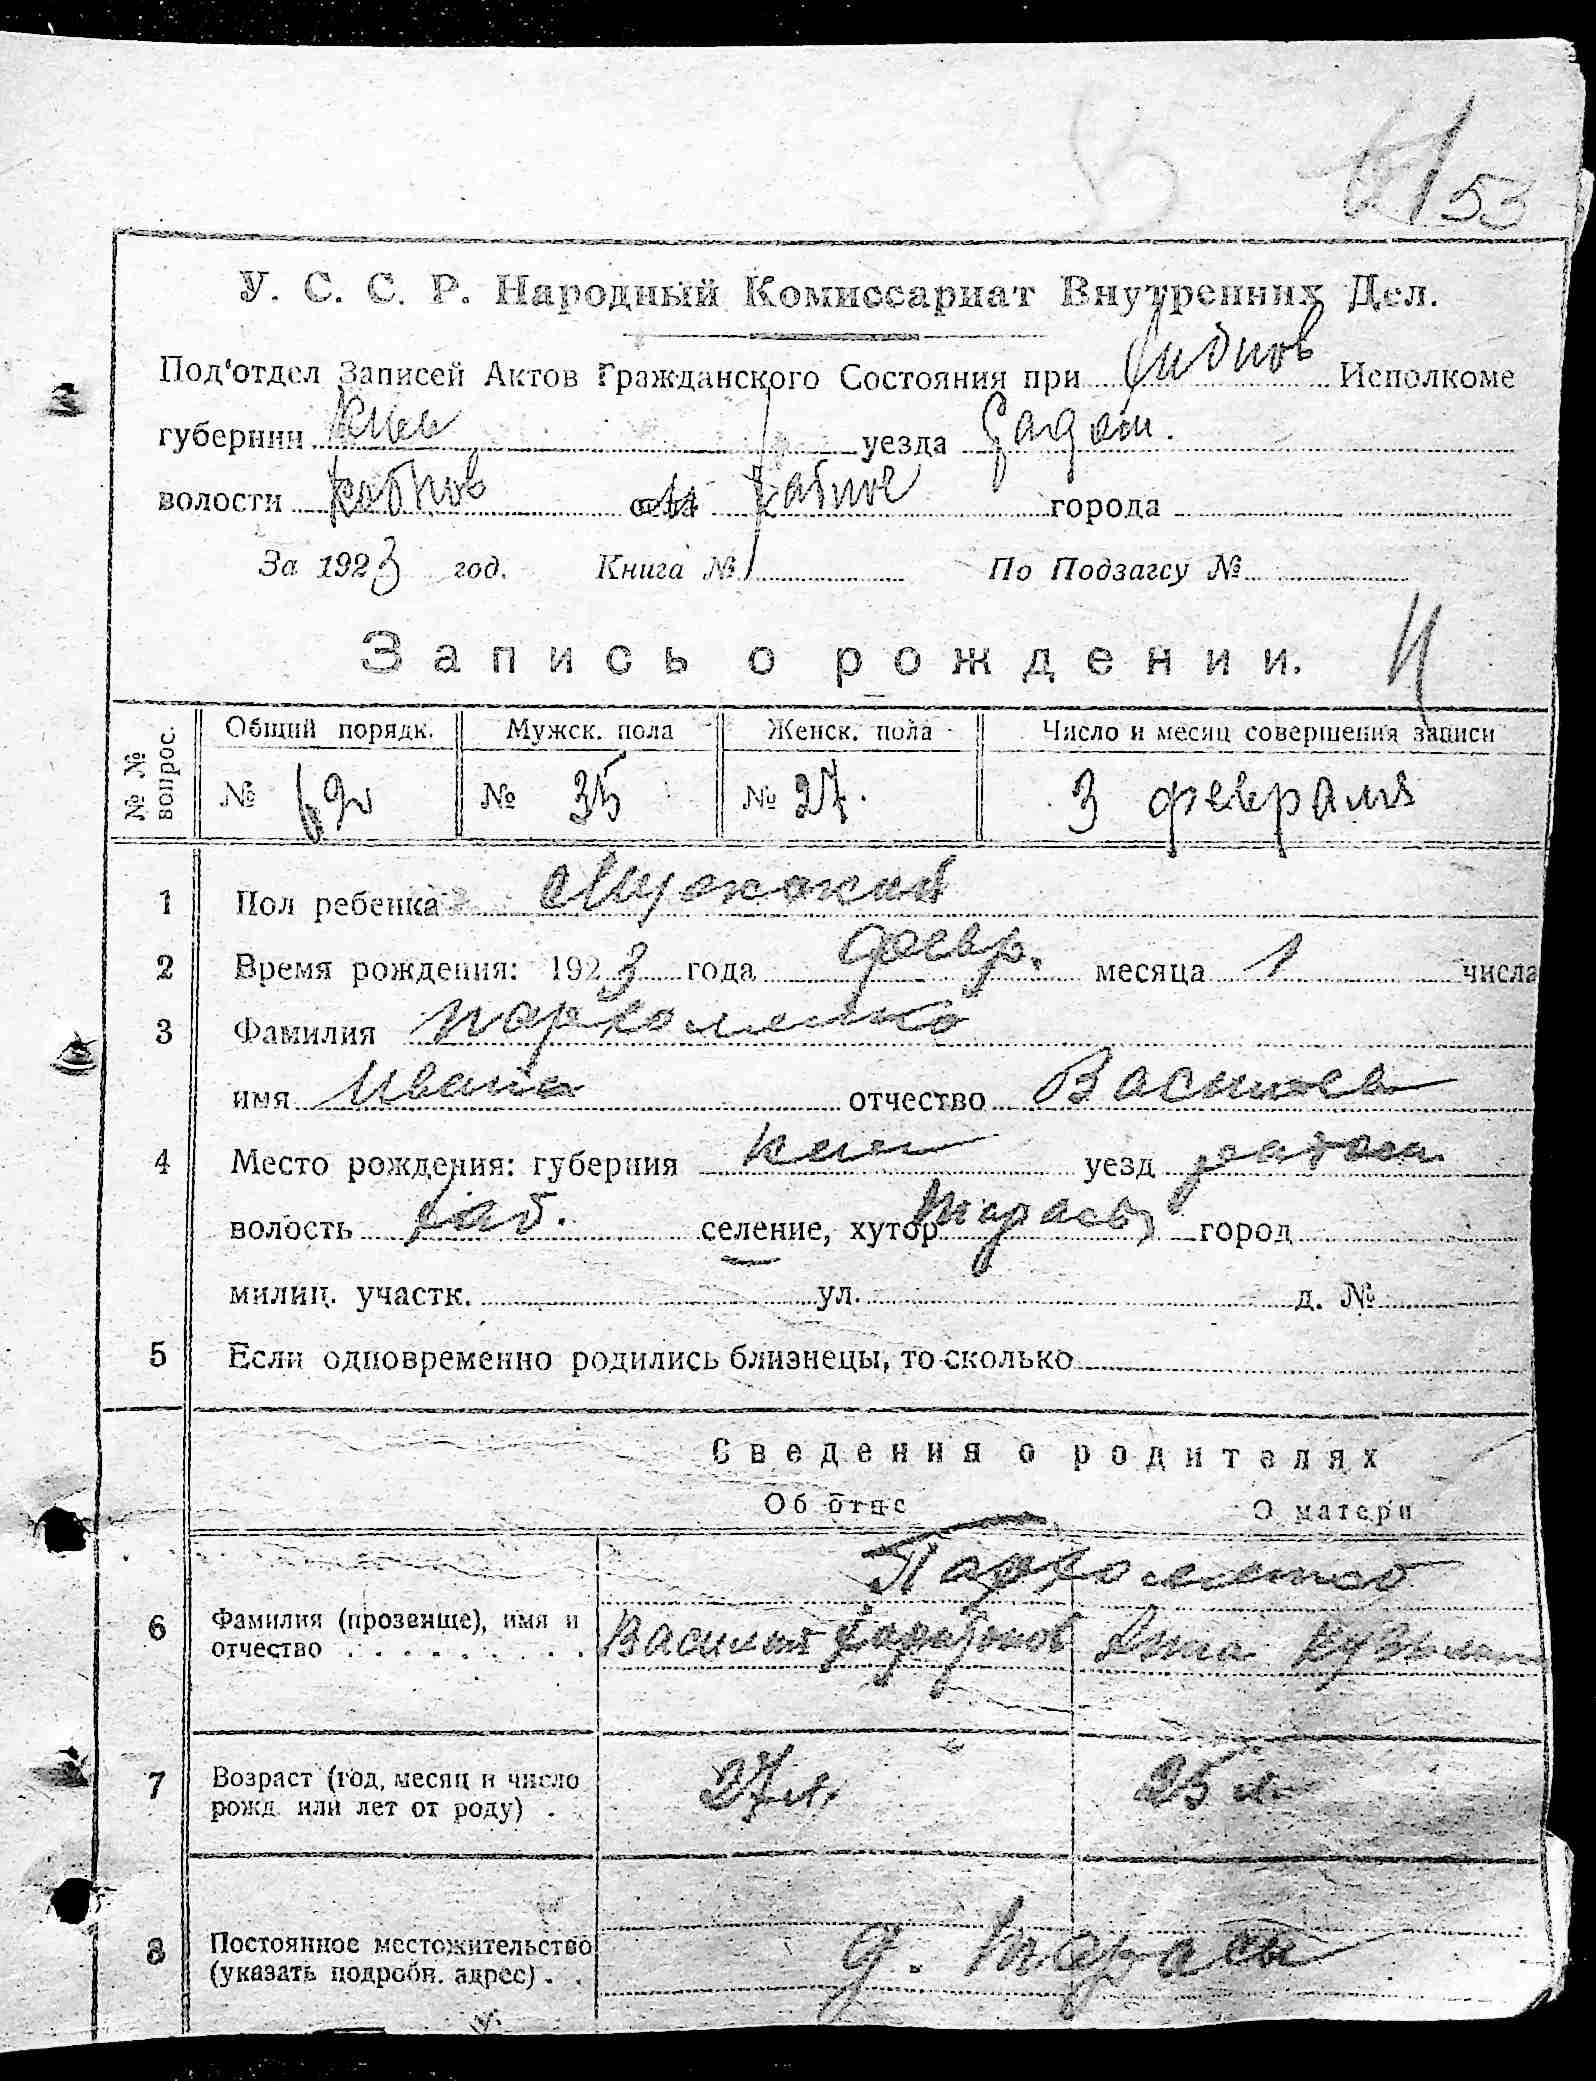 53
У. С. С. Р. Народный Комиссариат Внутренних Дел.
Под'отдел Записей Актов Гражданского Состояния при Исполкоме
губернии Киев уезда
волости Хабнов Хабное города
За 1923 год. Книга № По Подзагсу №
Запись о рождении.
№ № вопрос. Общий порядк. Мужск. пола Женск. пола Число и месяц совершения записи
№ 62 № 35 № 27. 3 февраля
1 Пол ребенка Мужской
2 Время рождения: 1923 года февр. месяца 1 числа
3 Фамилия Пархоменко
имя Иван отчество Васильев
4 Место рождения: губерния Киев уезд
волость Хаб. селение, хутор Тарасы город
милиц. участк. ул. д. №
5 Если одновременно родились близнецы, то сколько
Сведения о родителях
Об отце О матери
Пархоменко
6 Фамилия (прозвище), имя и отчество Василий Харитонов Анна Кузьмин
7 Возраст (год, месяц и число рожд. или лет от роду) 27 л. 25 л.
8 Постоянное местожительство (указать подробн. адрес) д. Тарасы